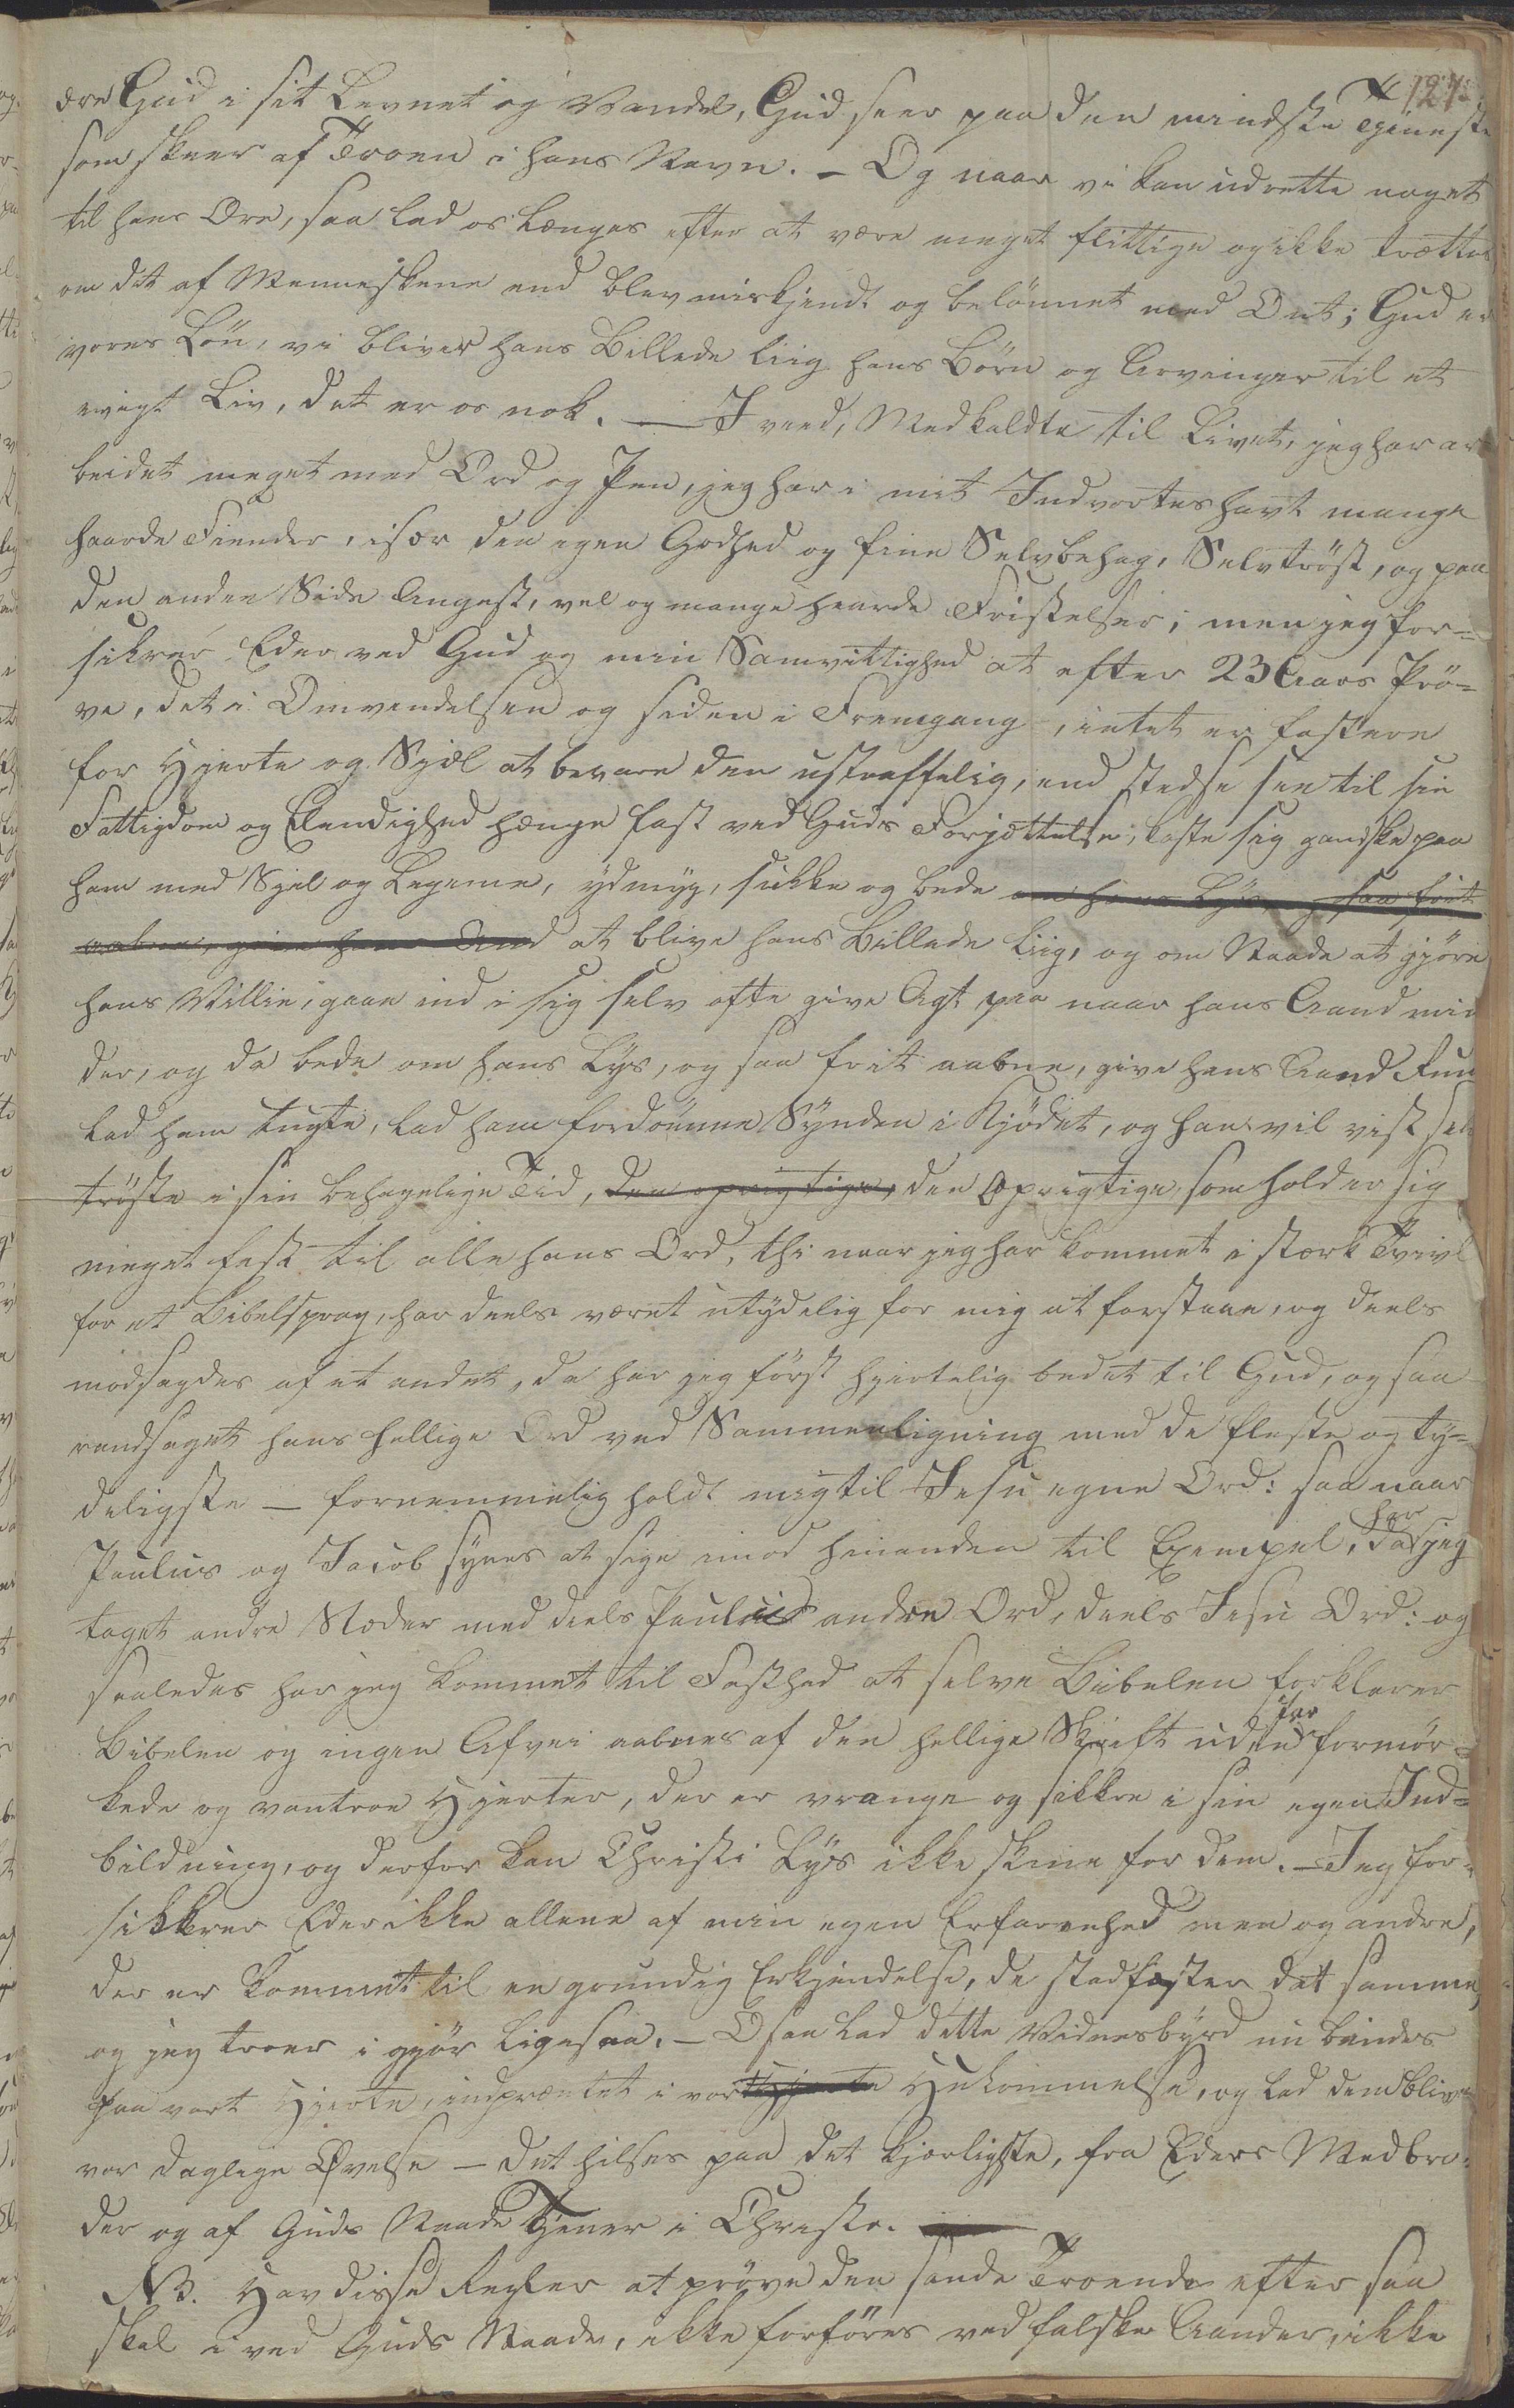 127.
ære Gud i sit Levnet og Vandel, Gud seer paa den mindste Tjeneste
som skeer af Troen i hans Navn. – Og naar vi kan udrette noget
til hans Ære, saa lad os længes efter at være meget flittige og ikke trættes
om det af Menneskene end blev miskjendt og belönnet med Ont; Gud er
vores Lön, vi bliver hans Billede liig hans Börn og Arvinger til et
evigt Liv, det er os nok. — I veed, Medkaldte til Livet, jeg har ar
beidet meget med Ord og Pen, jeg har i mit Indvortes havt mange
haarde Fiender, især den egen Godhed og fine Selvbehag, Selvtröst, og paa
den anden Side Angest, vel og mange haarde Fristelser; men jeg for=
sikrer Eder ved Gud og min Samvittighed at efter 23 Aars Prö=
ve, det i Omvendelsen og siden i Fremgang, intet er fastere
for Hjerte og Sjæl at bevare den ustraffelig, end stedse see til sin
Fattigdom og Elendighed hænge fast ved Guds Forjættelse, kaste sig gandske paa
ham med Sjel og Legeme, ydmyg, sukke og bede om hans Lys, og saa frit
aabne, give hans Aand at blive hans Billede liig, og om Naade at gjöre
hans Villie, gaae ind i sig selv ofte give Agt paa naar hans Aand min
der, og da bede om hans Lys, og saa frit aabne, give hans Aand Rum
lad ham tugte, lad ham fordömme Synden i Kjödet, og han vil vist
tröste i sin behagelige Tid, den oprigtige, den Oprigtige, som holder sig
meget fast til alle hans Ord, thi naar jeg har kommet i stærk Tvivl
for et Bibelsprog, har deels været utydelig for mig at forstaae, og deels
modsagdes af et andet, da har jeg först hjertelig bedet til Gud, og saa
randsaget hans hellige Ord ved Sammenligning med de fleste og ty=
deligste — fornemmelig holdt mig til Jesu egne Ord: saa naar
Paulus og Jacob synes at sige imod hinanden til Exempel, da har jeg
taget andre Stæder med deels Paulus andre Ord, deels Jesu Ord: og
saaledes har jeg kommet til Fasthed at selve Bibelen forklarer
Bibelen og ingen Afvei aabnes af den hellige Skrift uden for formör=
kede og vantroe Hjerter, der er vrange og sikkre i sin egen Ind=
bildning, og derfor kan Christi Lys ikke skinne for dem. – Jeg for=
sikkrer Eder ikke allene af min egen Erfarenhed men og andre,
der er kommet til en grundig Erkjendelse, de stadfæster det samme,
og jeg troer i gjör ligesaa. – O saa lad dette Vidnesbyrd nu bindes
paa vort Hjerte, indprentet i vor Hjerte Hukommelse, og lad dem blive
vor daglige Øvelse – Det hilses paa det kjærligste, fra Eders Medbro=
der og af Guds Naade Tjener i Christo.
NB. Hav disse Regler at pröve den sande Troende efter saa
skal i ved Guds Naade, ikke forföres ved falske Aander, ikke